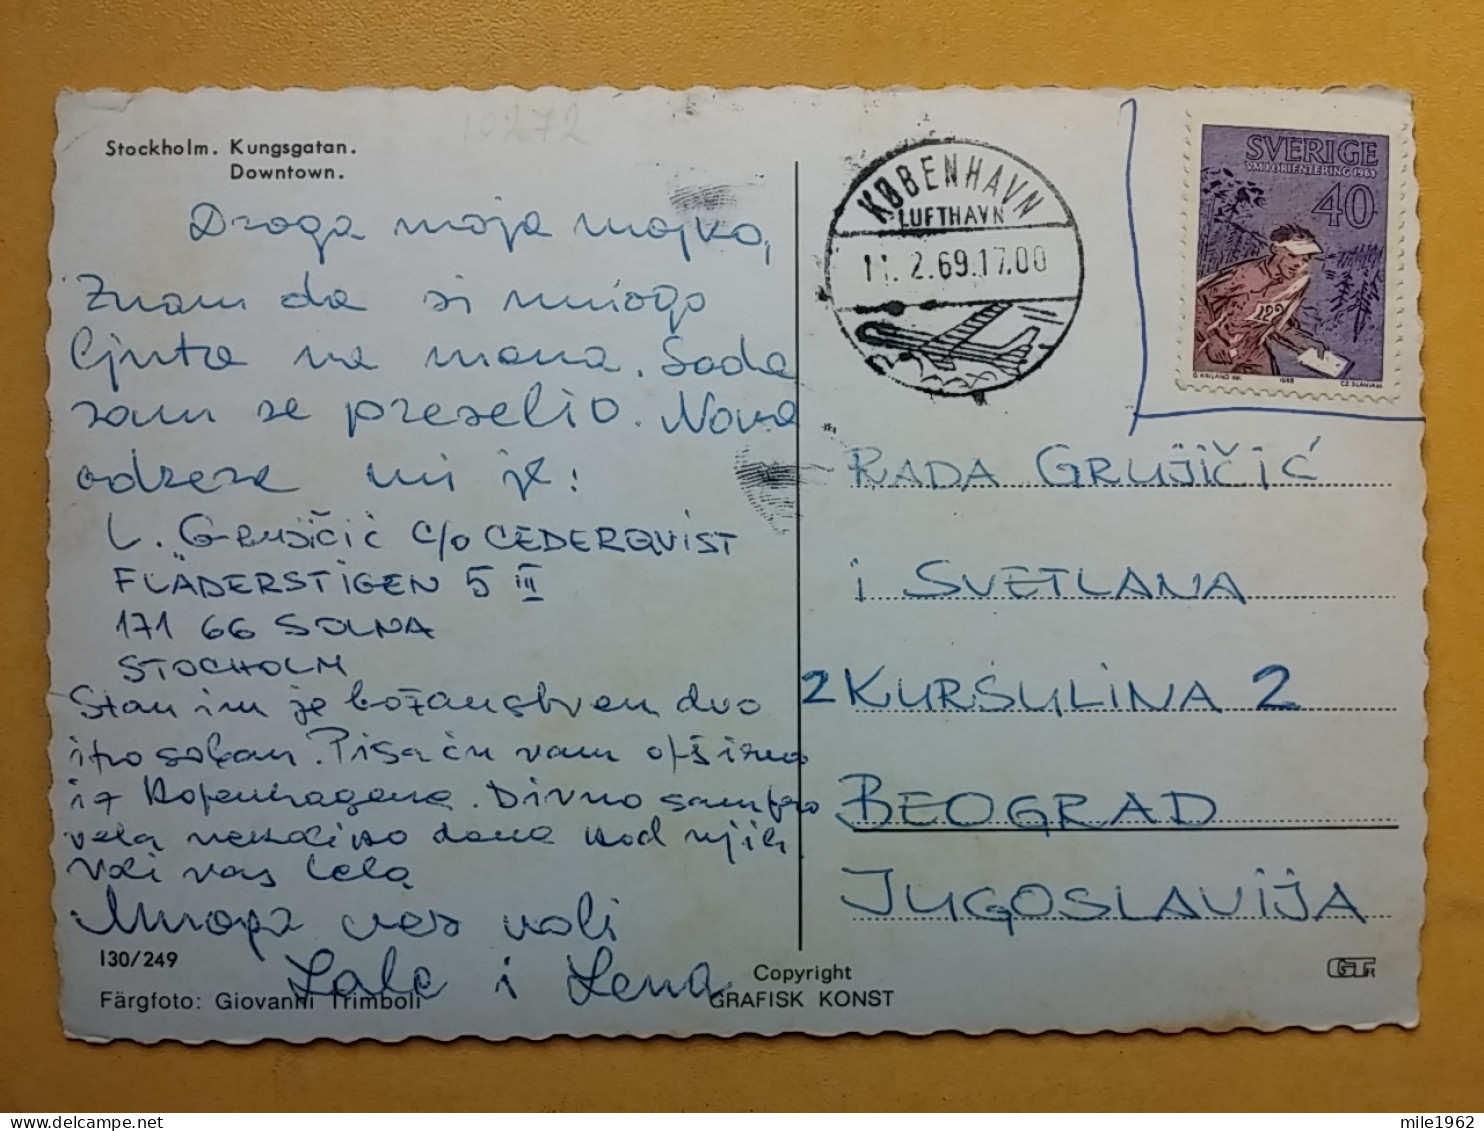 10272
Stockholm. Kungsgatan.
Downtown.
Draga moja majko,
Znam da si mnogo
ljuta na mene. Sada
sam se preselio. Nova
adresa mi je:
L. Grujičić c/o CEDERQVIST
FLÄDERSTIGEN 5 III
171 66 SOLNA
STOCHOLM
Stan im je božanstven dvo
ipo soban. Pisaću vam opširno
iz Kopenhagena. Divno sam pro
vela nekoliko dana kod njih
Voli vas Lela
Mnogo vas voli
Lale i Lena
130/249
Färgfoto: Giovanni Trimboli
Copyright
GRAFISK KONST
KØBENHAVN
LUFTHAVN
11. 2.69.17.00
SVERIGE
VM I ORIENTERING 1968
40
122
1968
CZ SLANIA sc
RADA GRUJIČIĆ
i SVETLANA
2 KURSULINA 2
BEOGRAD
JUGOSLAVIJA
mile1962